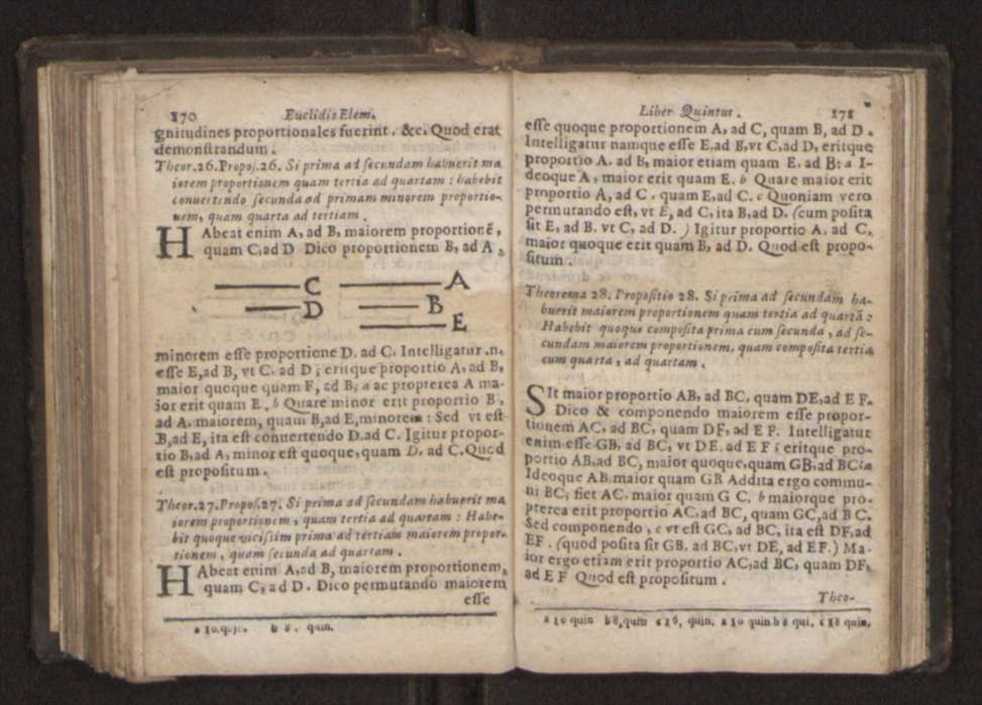 170 Euclidis Elem.
gnitudines proportionales fuerint. &c. Quod erat
demonstrandum.
Theor.26.Propos.26. Si prima ad secundam habuerit ma
iorem proportionem quam tertia ad quartam : habebit
conuertendo secunda ad primam minorem proportio-
nem, quam quarta ad tertiam.
HAbeat enim A, ad B, maiorem proportionē,
quam C, ad D Dico proportionem B, ad A,
C A
D B
E
minorem esse proportione D. ad C. Intelligatur .n.
esse E, ad B, vt C. ad D ; eritque proportio A, ad B,
maior quoque quam F, ad B; a ac propterea A ma-
ior erit quam E, b Quare minor erit proportio B,
ad A. maiorem, quam B, ad E, minorem : Sed vt est
B, ad E, ita est conuertendo D. ad C. Igitur propor-
tio B, ad A, minor est quoque, quam D, ad C. Quod
est propositum.
Theor.27.Propos.27. Si prima ad secundam habuerit ma
iorem proportionem, quam tertia ad quartam : Habe-
bit quoque vicissim prima ad tertiam maiorem propor-
tionem, quam secunda ad quartam.
HAbeat enim A, ad B, maiorem proportionem,
quam C, ad D. Dico permutando maiorem
esse
a 10. b 8. quin.
Liber Quintus. 171
esse quoque proportionem A, ad C, quam B, ad D.
Intelligatur namque esse E, ad B, vt C, ad D, eritque
proportio A. ad B, maior etiam quam E. ad B: a I-
deoque A, maior erit quam E. b Quare maior erit
proportio A, ad C. quam E, ad C. c Quoniam vero
permutando est, vt E, ad C, ita B, ad D. (cum posita
sit E, ad B. vt C, ad D. ) Igitur proportio A. ad C,
maior quoque erit quam B, ad D. Quod est propo-
situm.
Theorema 28. Propositio 28. Si prima ad secundam ha-
buerit maiorem proportionem quam tertia ad quartā :
Habebit quoque composita prima cum secunda, ad se-
cundam maiorem proportionem, quam composita tertia
cum quarta, ad quartam.
SIt maior proportio AB, ad BC, quam DE, ad E F.
Dico & componendo maiorem esse propor-
tionem AC, ad BC, quam DF, ad E F. Intelligatur
enim esse GB, ad BC, vt DE. ad E F ; eritque pro-
portio AB, ad BC, maior quoque, quam GB, ad BC: a
Ideoque AB. maior quam GB Addita ergo commu-
ni BC; fiet AC, maior quam G C. b maiorque pro-
pterea erit proportio AC, ad BC, quam GC, ad B C.
Sed componendo, c vt est GC, ad BC, ita est DF, ad
EF. (quod posita sit GB. ad BC, vt DE, ad EF.) Ma-
ior ergo etiam erit proportio AC, ad BC, quam DF,
ad E F Quod est propositum.
Theo-
a 10 quin b 8, quin c 16, quin. a 10 quin b 8 qui, c 18 quin,